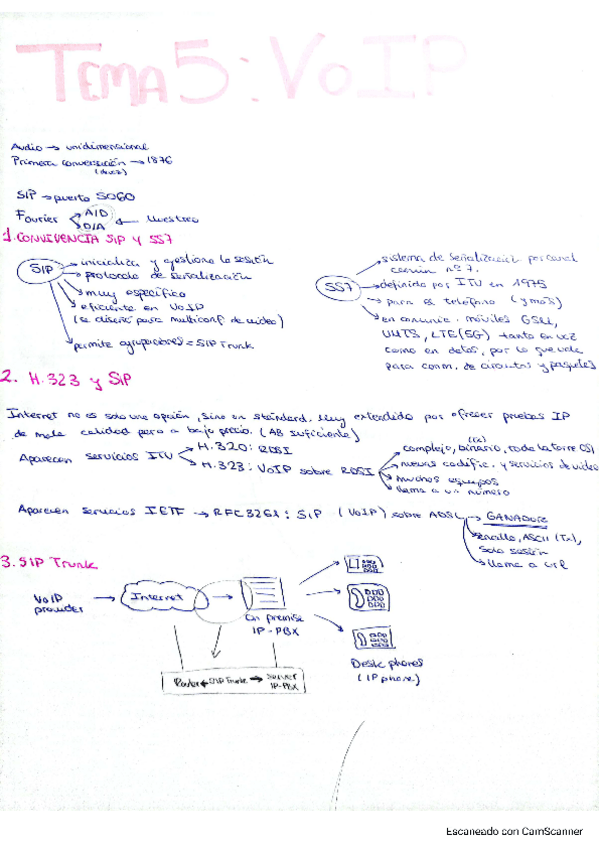 TEMA 5: VOIP
Audio → unidimensional
Primera conversación → 1876
(voz)
SIP → puerto 5060
Fourier A/D D/A ← Muestreo
1. CONVIVENCIA SIP Y SS7
SIP
→ inicializa y gestiona la sesión
→ protocolo de señalización
→ muy específico
→ eficiente en VoIP
(se diseñó para multiconf de video)
→ permite agrupaciones = SIP Trunk
SS7
→ sistema de señalización por canal
común nº 7.
→ definido por ITU en 1975
→ para el teléfono (y más)
→ en comunic. móviles GSM,
UMTS, LTE(5G) → tanto en voz
como en datos, por lo que vale
para conm. de circuitos y paquetes
2. H.323 y SIP
Internet no es solo una opción, sino un standard. Muy extendido por ofrecer pruebas IP
de mala calidad pero a bajo precio. (AB suficiente)
Aparecen servicios ITU
→ H.320: RDSI
→ H.323: VoIP sobre RDSI
→ complejo, binario, toda la torre OSI
→ nuevas codific. y servicios de video
→ muchos equipos
→ llama a un número
Aparecen servicios IETF → RFC3261: SIP (VoIP) sobre ADSL → GANADOR
→ sencillo, ASCII (Tx),
solo sesión
→ llama a url
3. SIP Trunk
VoIP
provider
→ Internet →
On premise
IP-PBX
Desk phones
(IP phone)
Router ← SIP Trunk → Server
IP-PBX
Escaneado con CamScanner